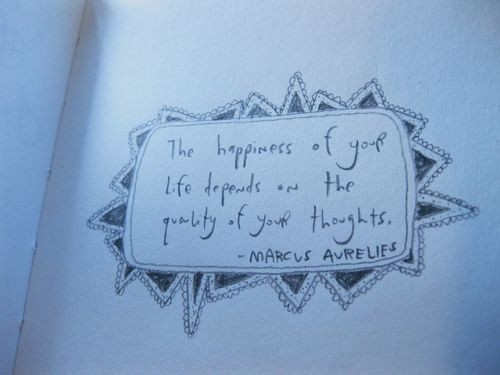 The happiness of your
life depends on the
quality of your thoughts.
- MARCUS AURELIES